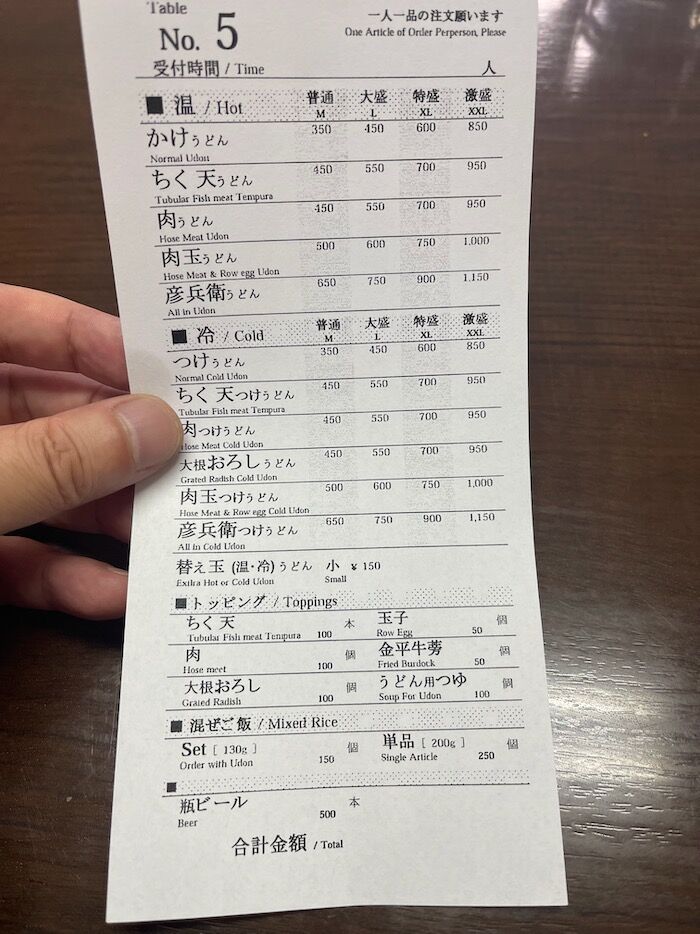 Table
No. 5
一人一品の注文願います
One Article of Order Perperson, Please
受付時間 / Time 人
■ 温 / Hot 普通 M 大盛 L 特盛 XL 激盛 XXL
かけうどん 350 450 600 850
Normal Udon
ちく天うどん 450 550 700 950
Tubular Fish meat Tempura
肉うどん 450 550 700 950
Hose Meat Udon
肉玉うどん 500 600 750 1,000
Hose Meat & Row egg Udon
彦兵衛うどん 650 750 900 1,150
All in Udon
■ 冷 / Cold 普通 M 大盛 L 特盛 XL 激盛 XXL
つけうどん 350 450 600 850
Normal Cold Udon
ちく天つけうどん 450 550 700 950
Tubular Fish meat Tempura
肉つけうどん 450 550 700 950
Hose Meat Cold Udon
大根おろしうどん 450 550 700 950
Grated Radish Cold Udon
肉玉つけうどん 500 600 750 1,000
Hose Meat & Row egg Cold Udon
彦兵衛つけうどん 650 750 900 1,150
All in Cold Udon
替え玉 (温・冷) うどん 小 ¥150
Exilra Hot or Cold Udon Small
■ トッピング / Toppings
ちく天 本 玉子 個
Tubular Fish meat Tempura 100 Row Egg 50
肉 個 金平牛蒡 個
Hose meet 100 Fried Burdock 50
大根おろし 個 うどん用つゆ 個
Graied Radish 100 Soup For Udon 100
■ 混ぜご飯 / Mixed Rice
Set [ 130g ] 個 単品 [ 200g ] 個
Order with Udon 150 Single Article 250
■
瓶ビール 本
Beer 500
合計金額 / Total